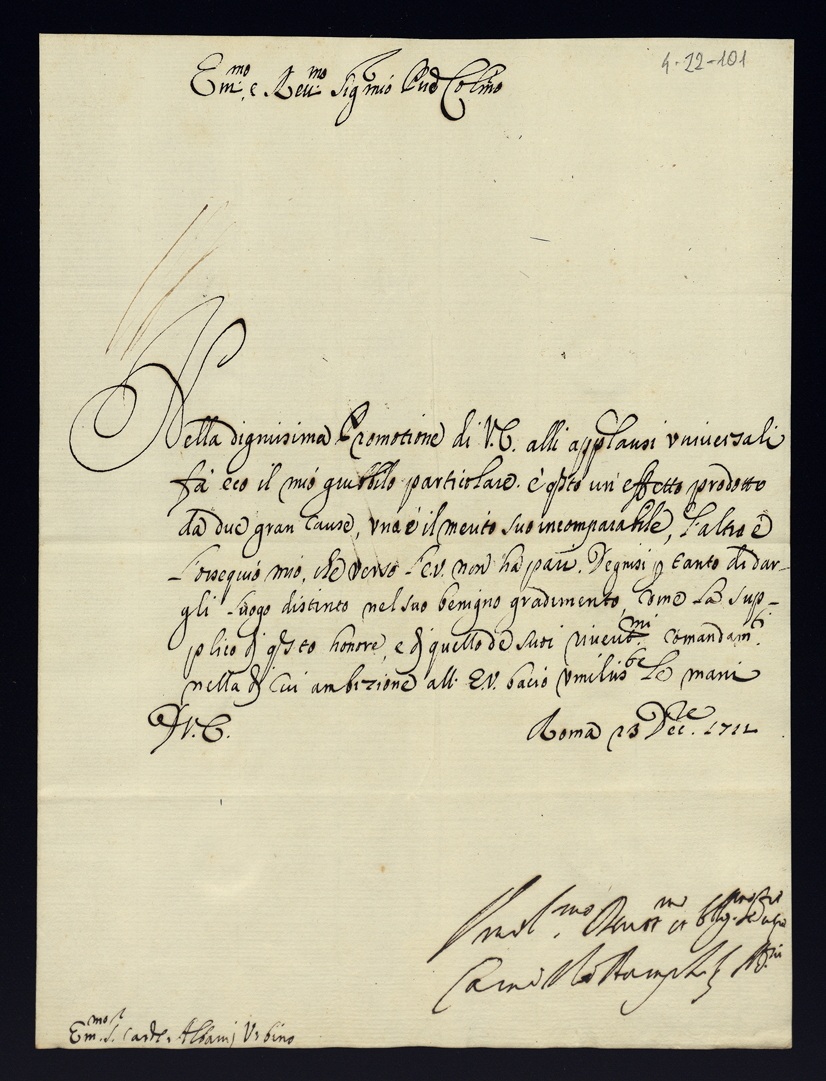 4-22-101
Em.mo e Reu.mo Sig mio Pnd Colmo
Nella dignissima Promotione di V.E. alli applausi vniuersali
fa' eco il mio giubbilo particolare. è q̃sto un' effetto prodotto
da due gran cause, vna è il merito suo incomparabile, l'altro è
l'ossequio mio, che verso l'E.V. non ha pari. Degnisi p̱ tanto di dar-
gli luogo distinto nel suo benigno gradimento, come la sup-
plico di q̃sto honore, e di quello de suoi riverit.mi comandam.ti
nella di cui ambizione all' E.V. bacio vmiliss.te le mani
D V.E.
Roma 13 Dec.re 1712
Vmil.mo Deuot.mo et Obblig.
Camillo Pamphilj
Em.mo S. Card.e Albani Vrbino